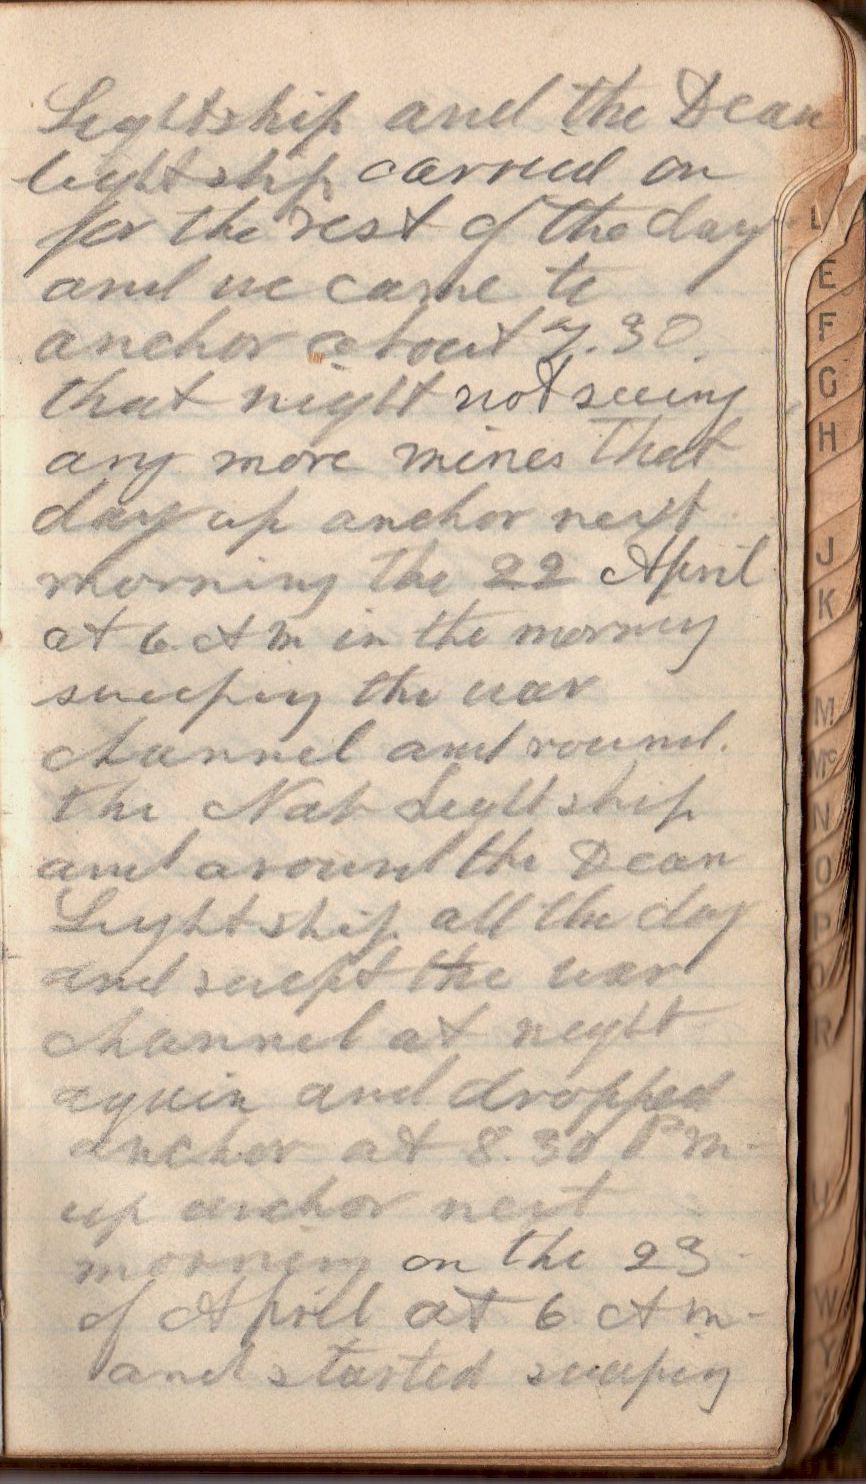 Lightship and the Dean
lightship carried on
for the rest of the day
and we came to
anchor about 7.30.
that night not seeing
any more mines that
day up anchor next
morning the 22 April
at 6 A m in the morning
sweeping the war
channel and round.
the Nab Lightship
and around the Dean
Lightship all the day
and swept the war
channel at night
again and dropped
anchor at 8.30 P m-
up anchor next
morning on the 23-
of April at 6 A m-
and started sweeping
L
E
F
G
H
J
K
M
Mc
N
O
P
Q
R
U
W
Y